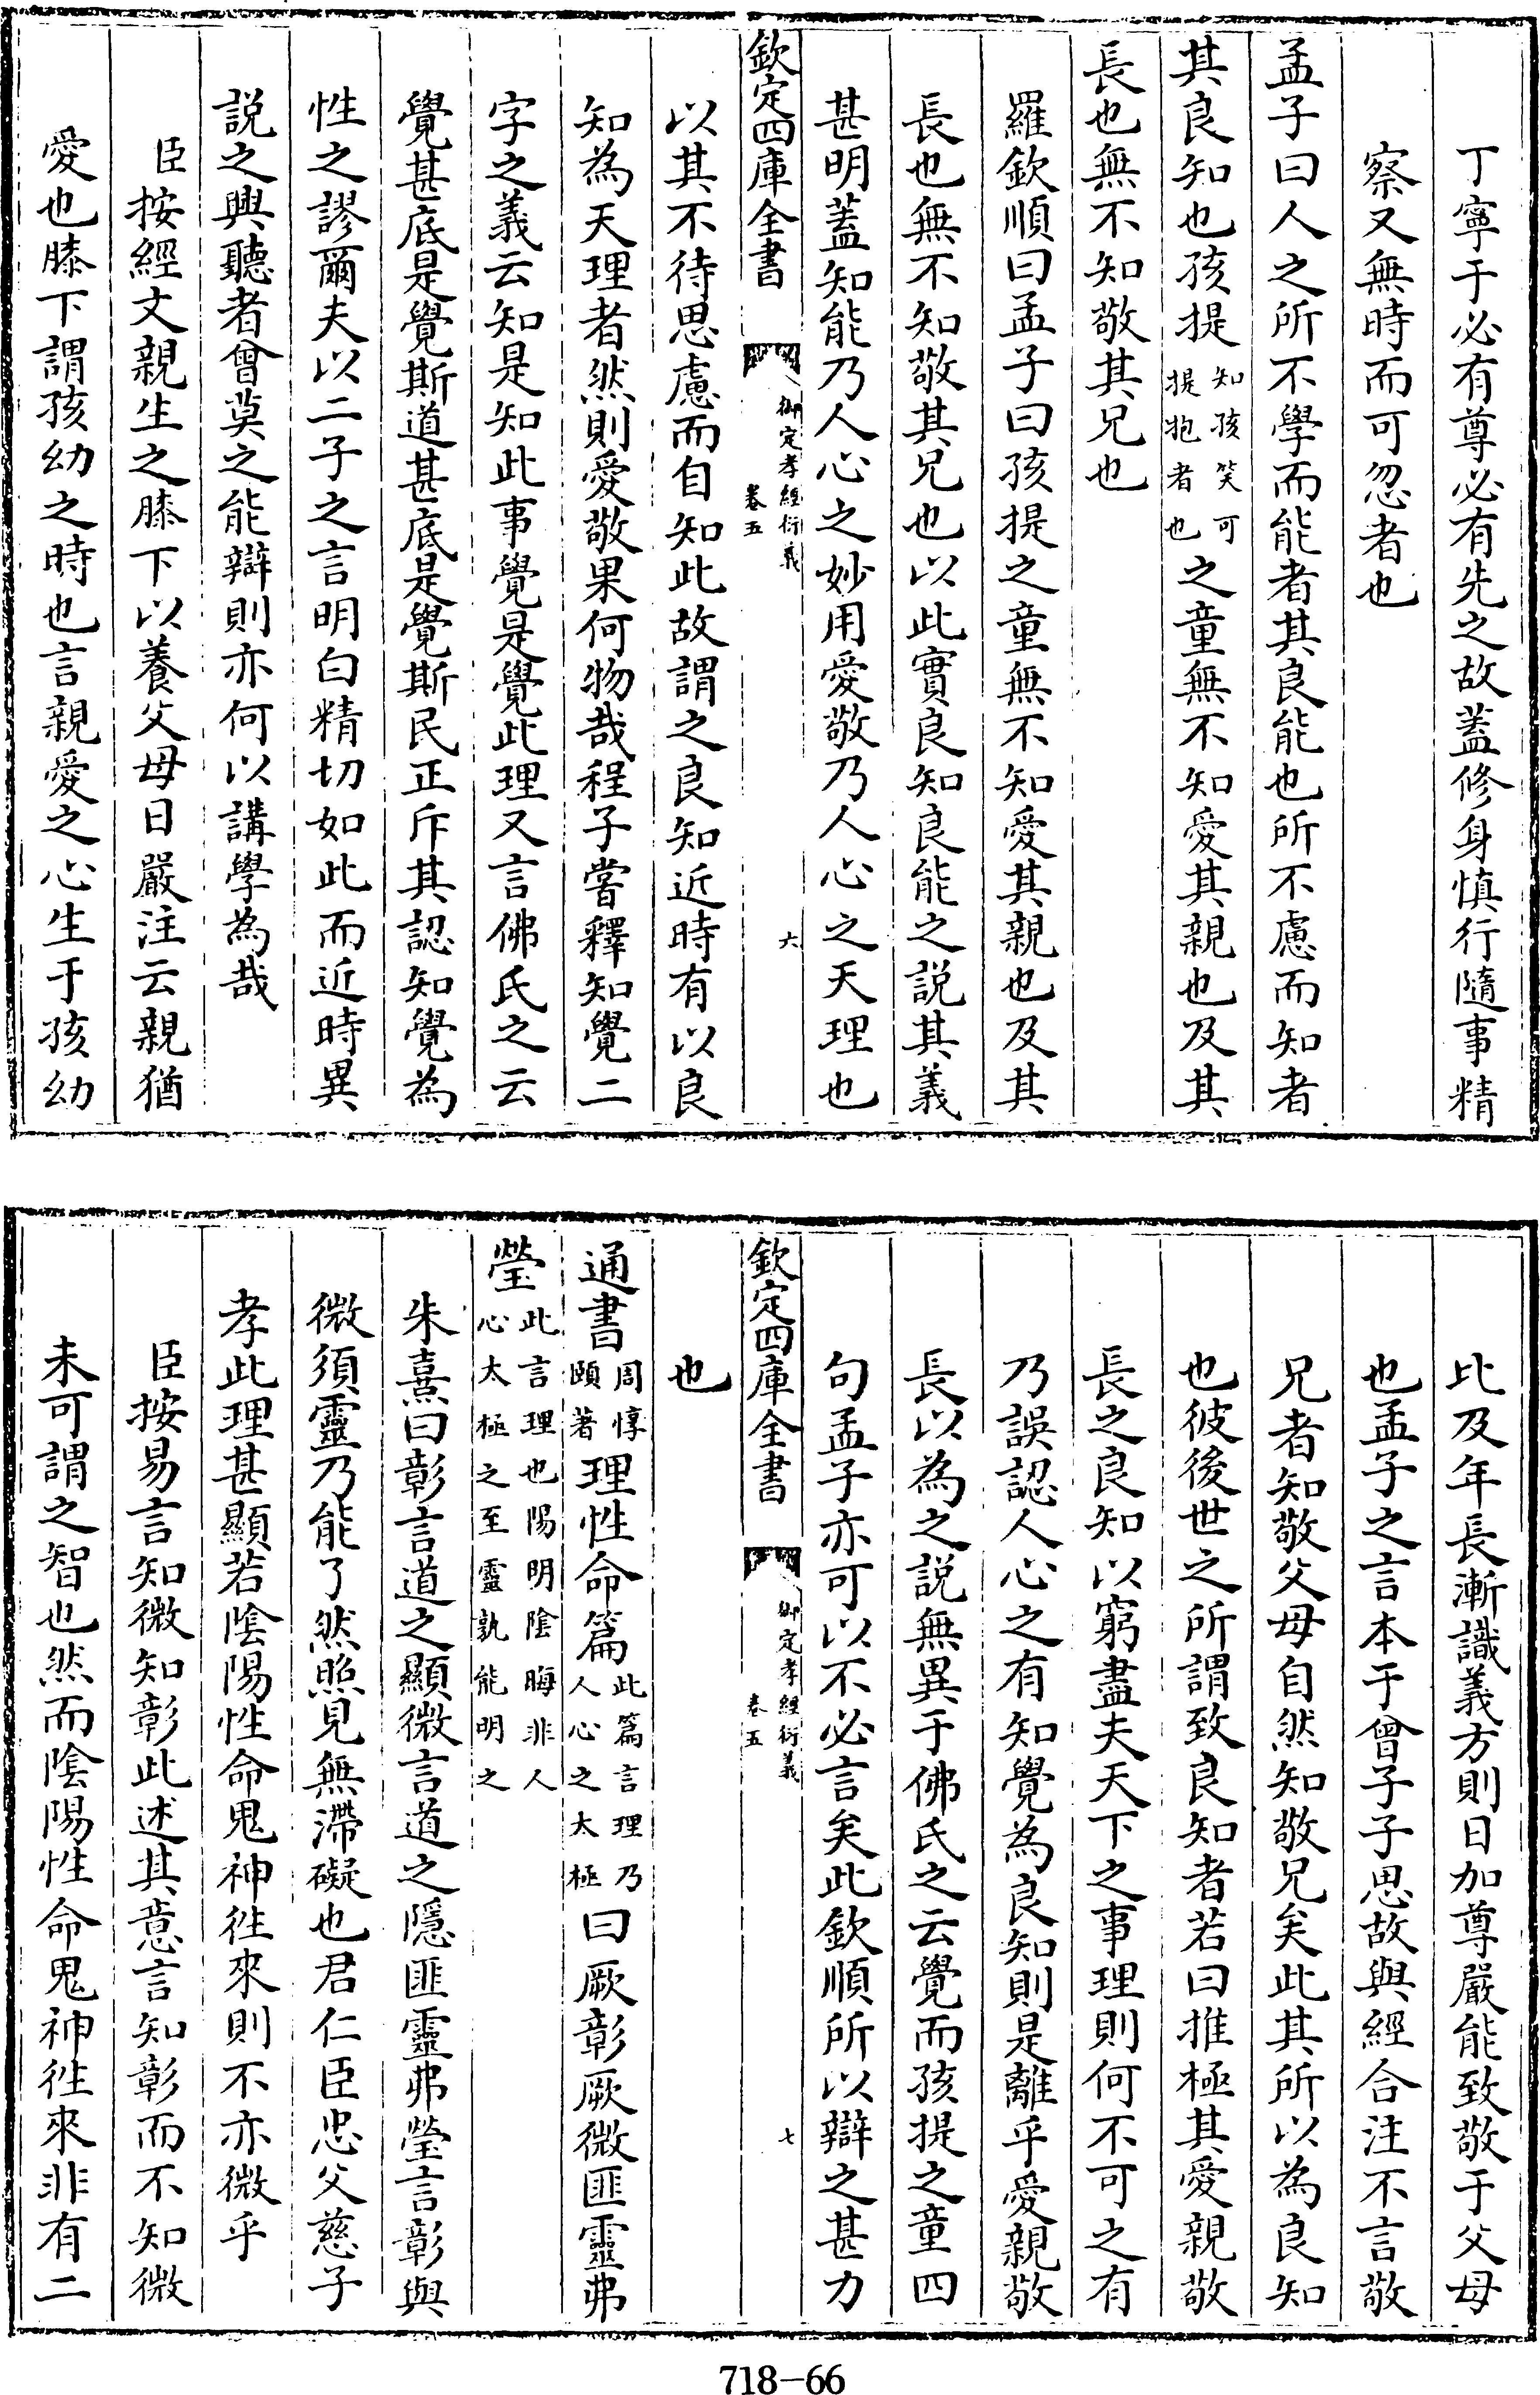 丁寧于必有尊必有先之故蓋修身慎行隨事精
察又無時而可忽者也
孟子曰人之所不學而能者其良能也所不慮而知者
其良知也孩提知孩笑可提抱者也之童無不知愛其親也及其
長也無不知敬其兄也
羅欽順曰孟子曰孩提之童無不知愛其親也及其
長也無不知敬其兄也以此實良知良能之説其義
甚明蓋知能乃人心之妙用愛敬乃人心之天理也
欽定四庫全書 御定孝經衍義 卷五 六
以其不待思慮而自知此故謂之良知近時有以良
知為天理者然則愛敬果何物哉程子嘗釋知覺二
字之義云知是知此事覺是覺此理又言佛氏之云
覺甚底是覺斯道甚底是覺斯民正斥其認知覺為
性之謬爾夫以二子之言明白精切如此而近時異
説之興聽者曾莫之能辯則亦何以講學為哉
臣按經文親生之膝下以養父母日嚴注云親猶
愛也膝下謂孩幼之時也言親愛之心生于孩幼
比及年長漸識義方則日加尊嚴能致敬于父母
也孟子之言本于曾子子思故與經合注不言敬
兄者知敬父母自然知敬兄矣此其所以為良知
也彼後世之所謂致良知者若曰推極其愛親敬
長之良知以窮盡夫天下之事理則何不可之有
乃誤認人心之有知覺為良知則是離乎愛親敬
長以為之説無異于佛氏之云覺而孩提之童四
句孟子亦可以不必言矣此欽順所以辯之甚力
欽定四庫全書 御定孝經衍義 卷五 七
也
通書周惇頤著理性命篇此篇言理乃人心之太極曰厥彰厥微匪靈弗
瑩此言理也陽明陰晦非人心太極之至靈孰能明之
朱熹曰彰言道之顯微言道之隱匪靈弗瑩言彰與
微須靈乃能了然照見無滯礙也君仁臣忠父慈子
孝此理甚顯若陰陽性命鬼神往來則不亦微乎
臣按易言知微知彰此述其意言知彰而不知微
未可謂之智也然而陰陽性命鬼神往來非有二
718-66